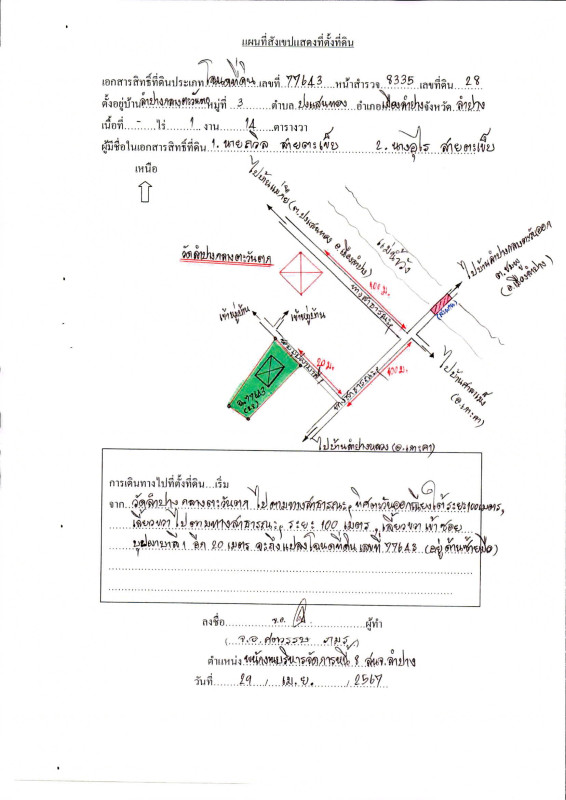 แผนที่สังเขปแสดงที่ตั้งที่ดิน
เอกสารสิทธิ์ที่ดินประเภท โฉนดที่ดิน เลขที่ 77643 หน้าสำรวจ 8335 เลขที่ดิน 28
ตั้งอยู่บ้าน ลำปางกลางตะวันตก หมู่ที่ 3 ตำบล ปงแสนทอง อำเภอ เมืองลำปาง จังหวัด ลำปาง
เนื้อที่ - ไร่ 1 งาน 14 ตารางวา
ผู้มีชื่อในเอกสารสิทธิ์ที่ดิน 1. นายถวิล สายตะเข็บ 2. นางอุไร สายตะเข็บ
เหนือ
(ต.ปงแสนทอง อ.เมืองลำปาง)
แม่น้ำวัง
ไปบ้านลำปางกลางตะวันออก
ต.ชมพู
(อ.เมืองลำปาง)
วัดลำปางกลางตะวันตก
100 ม.
ทางสาธารณะ
(สะพาน)
เข้าหมู่บ้าน
เข้าหมู่บ้าน
20 ม.
100 ม.
ทางสาธารณะ
ฉ.77643
(อ.เกาะคา)
ไปบ้านลำปางหลวง (อ.เกาะคา)
การเดินทางไปที่ตั้งที่ดิน...เริ่ม
จาก วัดลำปางกลางตะวันตก ไปตามทางสาธารณะ, ทิศตะวันออกเฉียงใต้ ระยะ 100 เมตร,
เลี้ยวขวา ไปตามทางสาธารณะ, ระยะ 100 เมตร, เลี้ยวขวา เข้าซอย
1 อีก 20 เมตร จะถึงแปลงโฉนดที่ดิน เลขที่ 77643 (อยู่ด้านซ้ายมือ)
ลงชื่อ จ.อ. ผู้ทำ
ตำแหน่ง พนักงานบริหารจัดการหนี้ 8 สนจ.ลำปาง
วันที่ 29 / เม.ย. / 2567